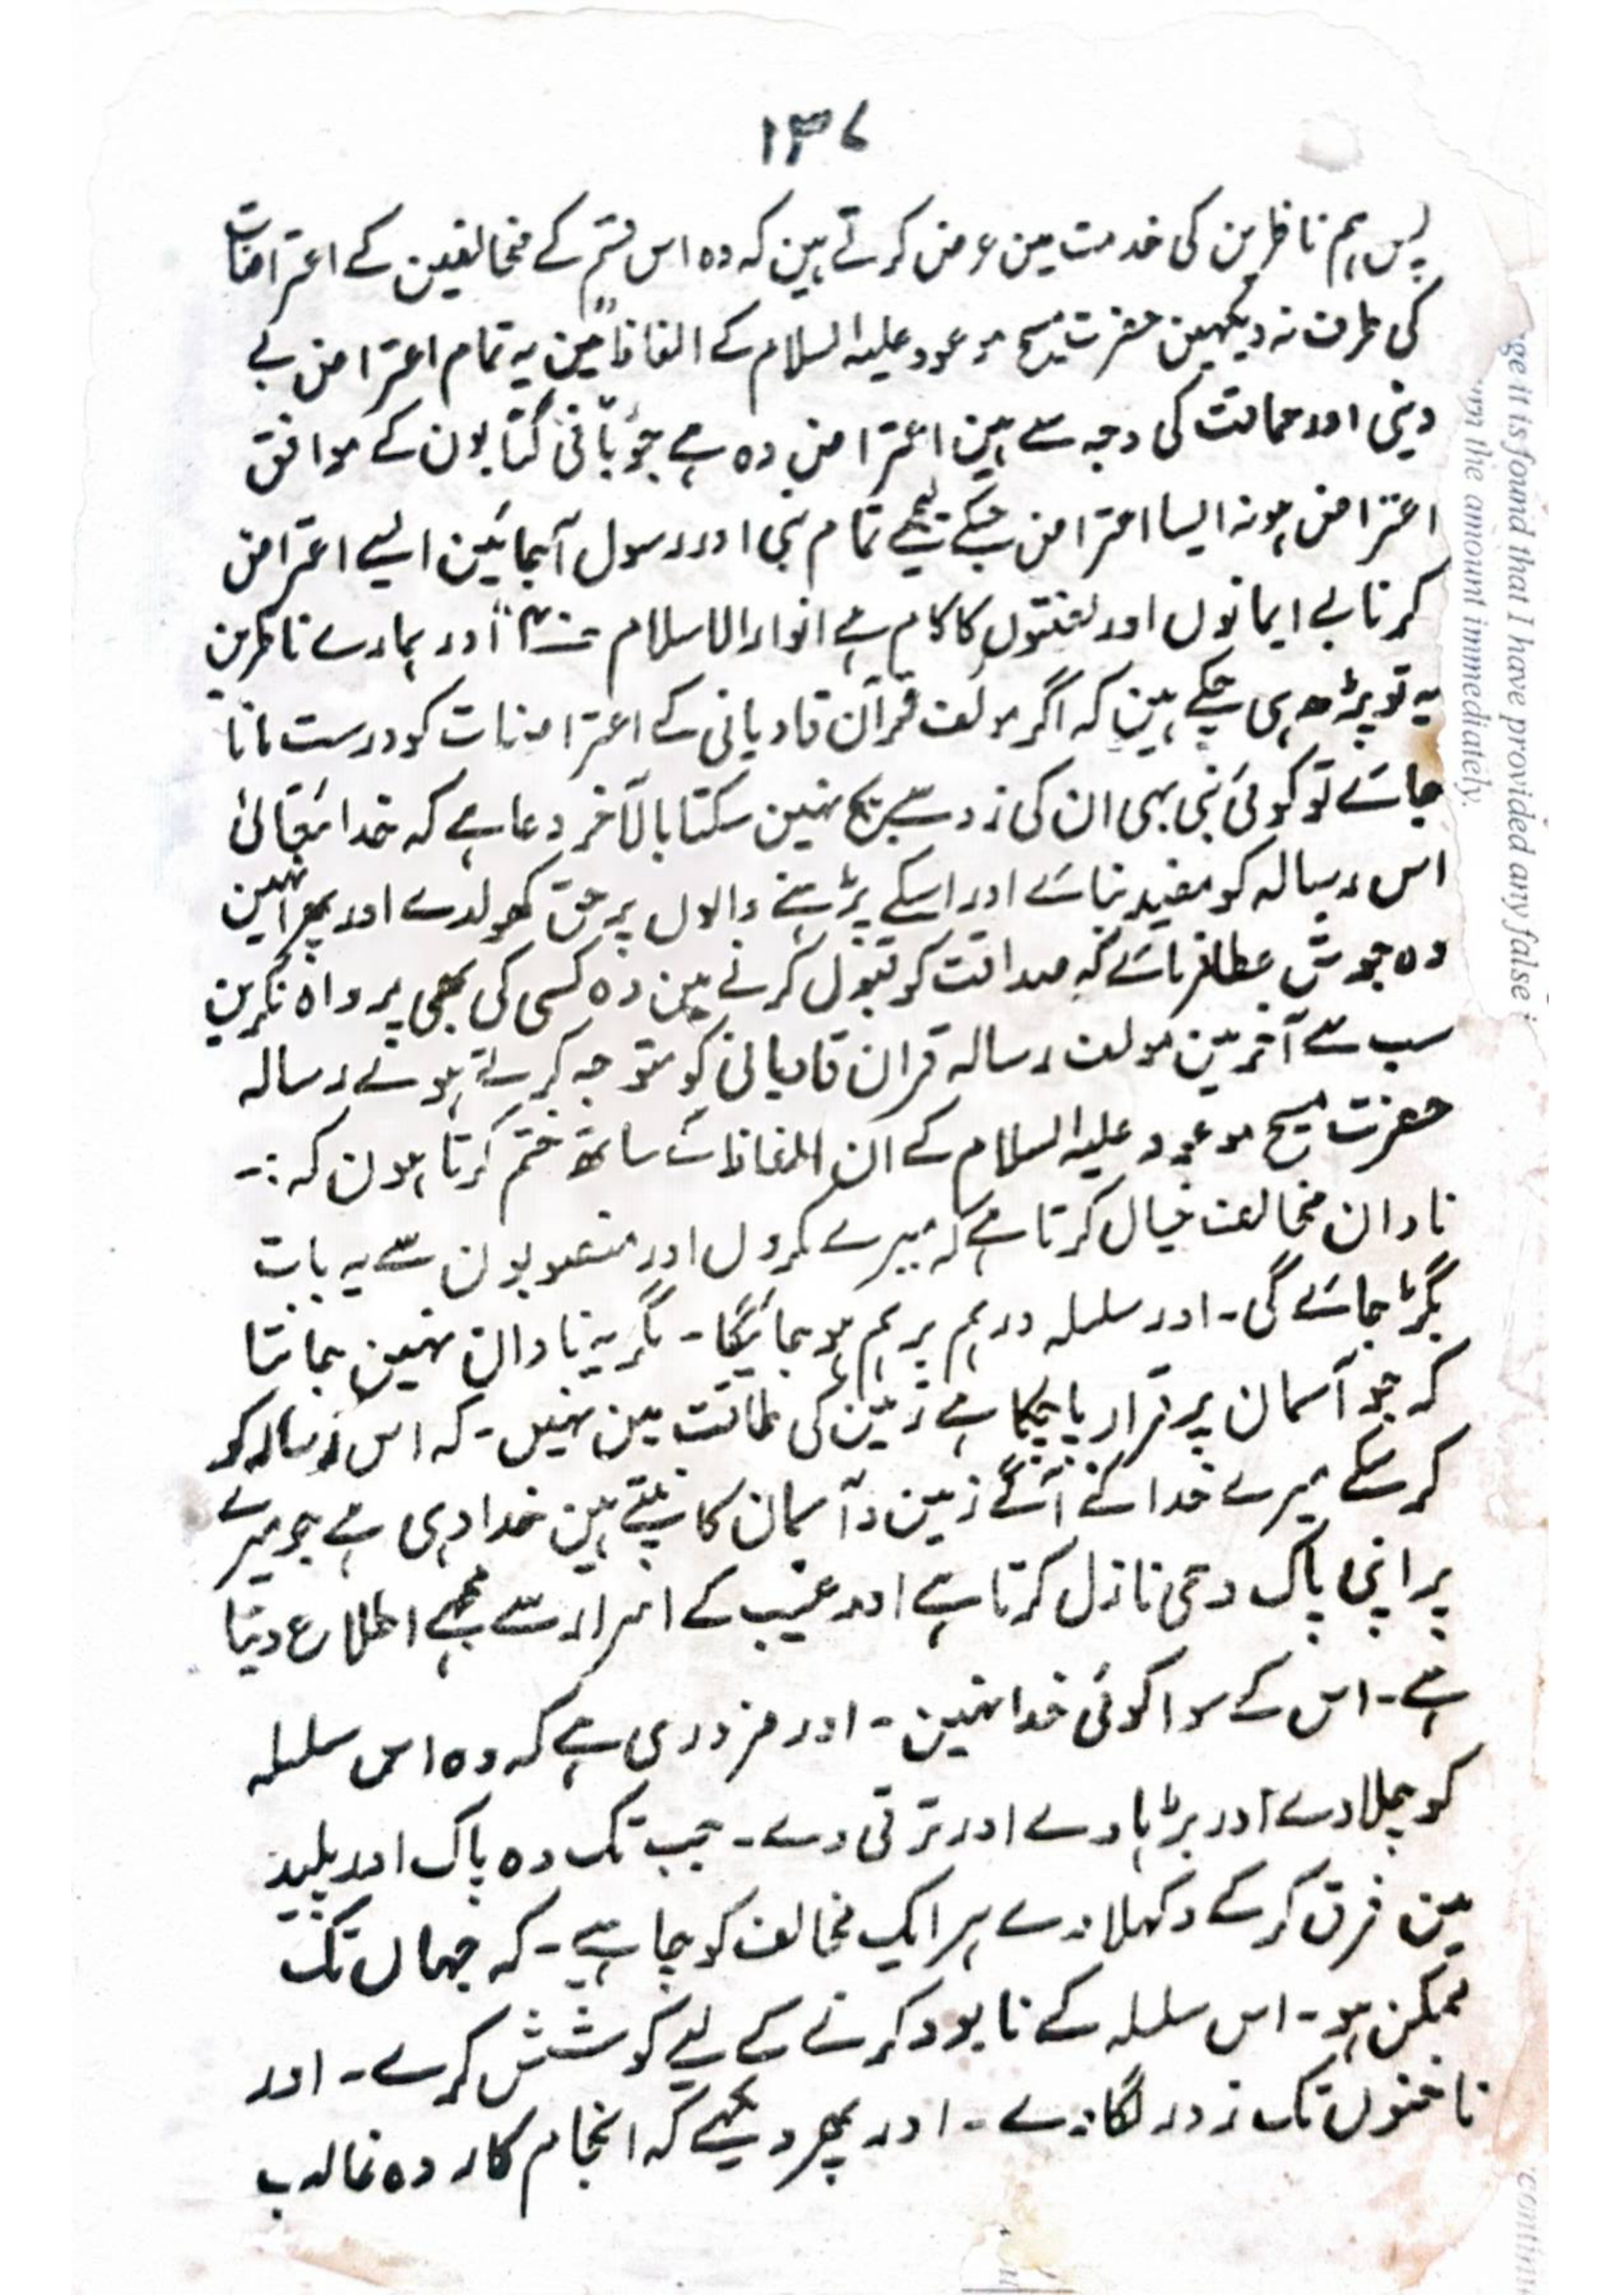 ۱۳۷
پس ہم ناظرین کی خدمت مین عرض کرتے ہین کہ وہ اس قسم کے مخالفین کے اعتراضات
کی طرف نہ دیکھین حضرت مسیح موعود علیہ السلام کے الفاظ مین "یہ تمام اعتراض بے
دینی اور حماقت کی وجہ سے ہین اعتراض وہ ہے جو باقی کتابون کے موافق
اعتراض ہو نہ ایسا اعتراض جسکے نیچے تمام نبی اور رسول آجائین ایسے اعتراض
کرنا بے ایمانوں اور لعنتوں کا کام ہے انوار الاسلام" اور ہمارے ناظرین
یہ تو پڑھ ہی چکے ہین کہ اگر مولف قرآن قادیانی کے اعتراضات کو درست مانا
جائے تو کوئی نبی بہی ان کی زد سے بچ نہین سکتا بالآخر دعا ہے کہ خدا تعالیٰ
اس رسالہ کو مفید بنائے اور اسکے پڑہنے والوں پر حق کھولدے اور پھر انہین
وہ جوش عطا فرمائے کہ صداقت کو قبول کرنے مین وہ کسی کی بھی پرواہ نکرین
سب سے آخر مین مولف رسالہ قران قادیانی کو متوجہ کرتے ہوئے رسالہ
حضرت مسیح موعود علیہ السلام کے ان الفاظ کے ساتھ ختم کرتا ہون کہ :-
نادان مخالف خیال کرتا ہے کہ میرے مکروں اور منصوبون سے یہ بات
بگڑ جائے گی - اور سلسلہ درہم برہم ہو جائیگا - مگر یہ نادان نہین جانتا
کہ جو آسمان پر قرار پا چکا ہے زمین کی طاقت مین نہیں - کہ اس رسالہ کو
کر سکے میرے خدا کے آگے زمین و آسمان کانپتے ہین خدا وہی ہے جو میرے
پر اپنی پاک وحی نازل کرتا ہے اور غیب کے اسرار سے مجھے اطلاع دیتا
ہے - اس کے سوا کوئی خدا نہین - اور ضروری ہے کہ وہ اس سلسلہ
کو چلا دے اور بڑہا دے اور ترقی دے - جب تک وہ پاک اور پلید
مین فرق کر کے دکہلا دے ہر ایک مخالف کو چاہیے - کہ جہاں تک
ممکن ہو - اس سلسلہ کے نابود کرنے کے لیے کوشش کرے - اور
ناخنوں تک زور لگا دے - اور پھر دیکھے کہ انجام کار وہ غالب
ge it is found that I have provided any false i
the amount immediately.